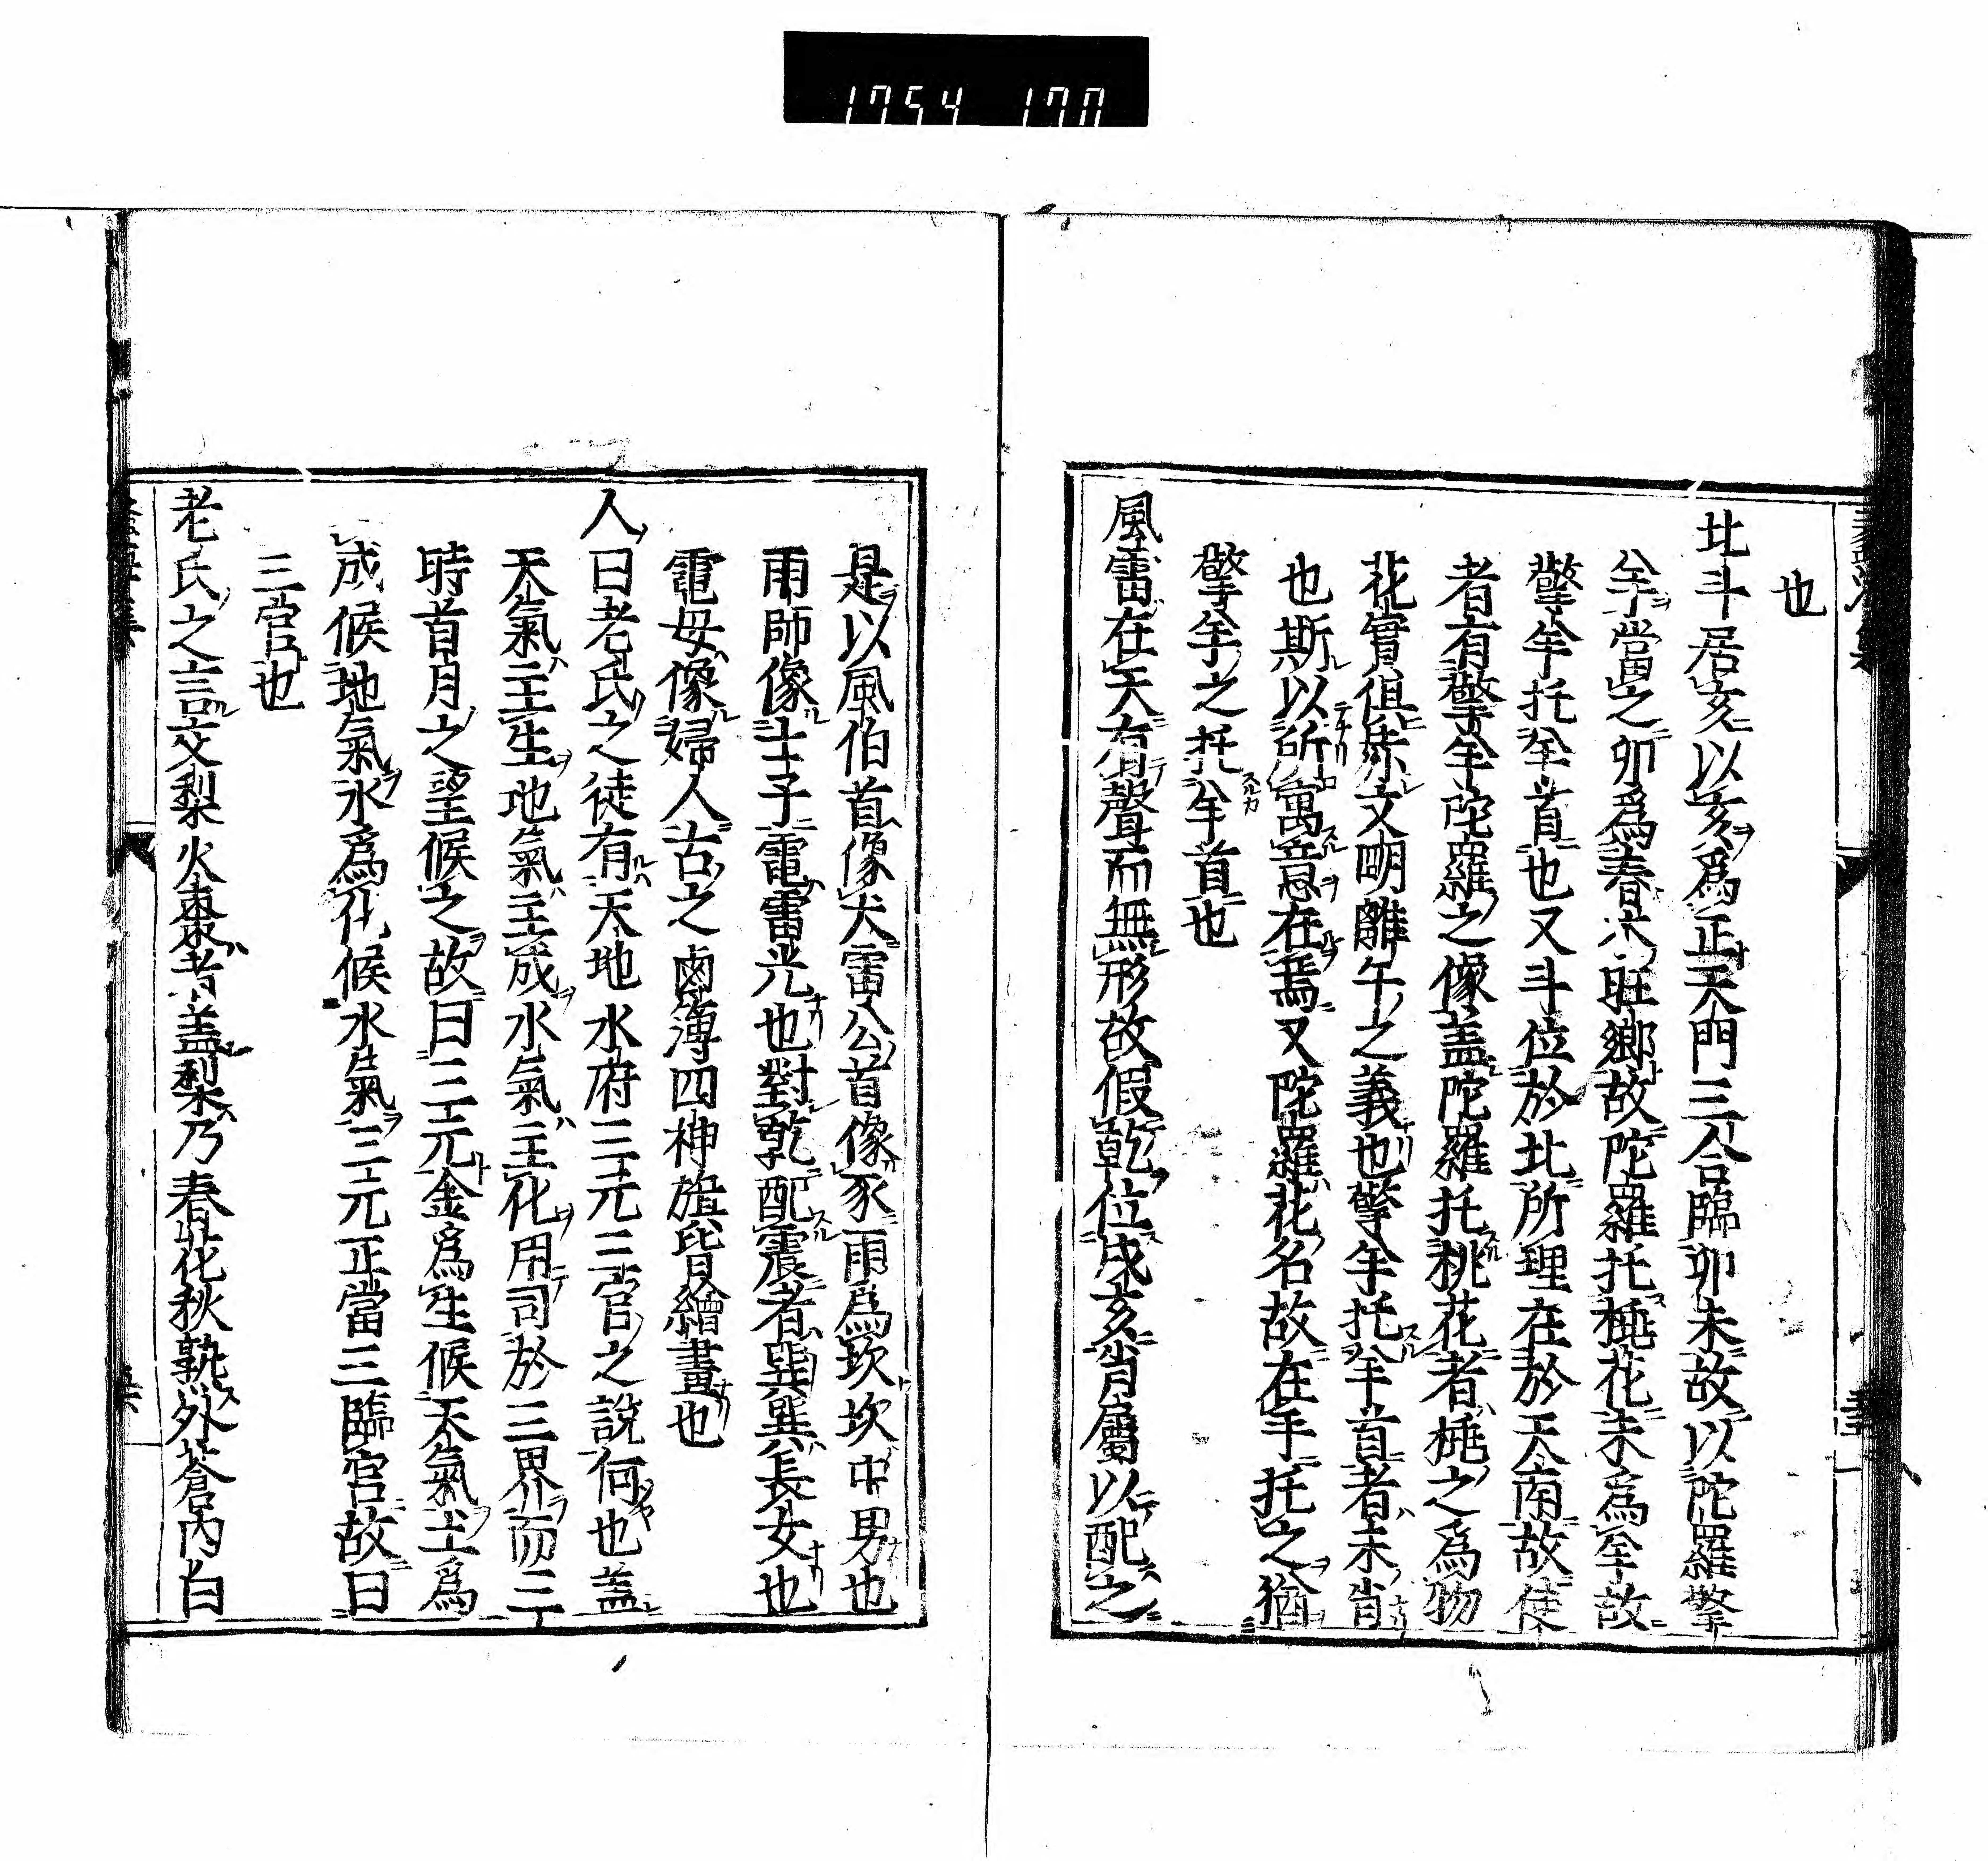 1754 170
也
北斗居亥以亥爲正天門三合臨卯未故以陀羅擎
羊當之卯爲春木旺鄉故陀羅托桃花未爲羊故
擎羊托羊首也又斗位於北所理在於天南故使
者有擎羊陀羅之像盖陀羅托桃花者桃之爲物
花實俱赤文明離午之義也擎羊托羊首者未肖
也斯以所寓意在焉又陀羅花名故在手托之猶
擎羊之托羊首也
風雷在天有聲而無形故假乾位戌亥肖屬以配之
是以風伯首像犬雷公首像豕雨爲坎坎中男也
雨師像士子電雷光也對乾配震者巽巽長女也
電母像婦人古之鹵簿四神旗皆繪畫也
人曰老氏之徒有天地水府三元三官之說何也盖
天氣主生地氣主成水氣主化用司於三界而三
時首月之望候之故曰三元金爲生候天氣土爲
成候地氣水爲化候水氣三元正當三臨官故曰
三官也
老氏之言交梨火棗者盖梨乃春花秋熟外蒼内白